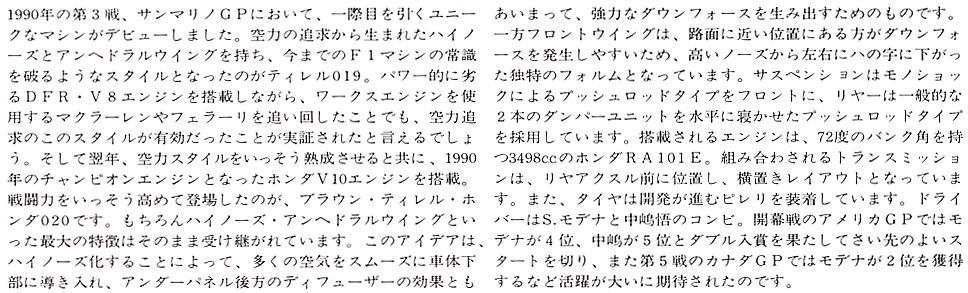 1990年の第3戦、サンマリノGPにおいて、一際目を引くユニー
クなマシンがデビューしました。空力の追求から生まれたハイノ
ーズとアンヘドラルウイングを持ち、今までのF1マシンの常識
を破るようなスタイルとなったのがティレル019。パワー的に劣
るDFR・V8エンジンを搭載しながら、ワークスエンジンを使
用するマクラーレンやフェラーリを追い回したことでも、空力追
求のこのスタイルが有効だったことが実証されたと言えるでしょ
う。そして翌年、空力スタイルをいっそう熟成させると共に、1990
年のチャンピオンエンジンとなったホンダV10エンジンを搭載。
戦闘力をいっそう高めて登場したのが、ブラウン・ティレル・ホ
ンダ020です。もちろんハイノーズ・アンヘドラルウイングとい
った最大の特徴はそのまま受け継がれています。このアイデアは、
ハイノーズ化することによって、多くの空気をスムーズに車体下
部に導き入れ、アンダーパネル後方のディフューザーの効果とも
あいまって、強力なダウンフォースを生み出すためのものです。
一方フロントウイングは、路面に近い位置にある方がダウンフォ
ースを発生しやすいため、高いノーズから左右にハの字に下がっ
た独特のフォルムとなっています。サスペンションはモノショッ
クによるプッシュロッドタイプをフロントに、リヤーは一般的な
2本のダンパーユニットを水平に寝かせたプッシュロッドタイプ
を採用しています。搭載されるエンジンは、72度のバンク角を持
つ3498ccのホンダRA101E。組み合わされるトランスミッショ
ンは、リヤアクスル前に位置し、横置きレイアウトとなっていま
す。また、タイヤは開発が進むピレリを装着しています。ドライ
バーはS.モデナと中嶋悟のコンビ。開幕戦のアメリカGPではモ
デナが4位、中嶋が5位とダブル入賞を果たしてさい先のよいス
タートを切り、また第5戦のカナダGPではモデナが2位を獲得
するなど活躍が大いに期待されたのです。